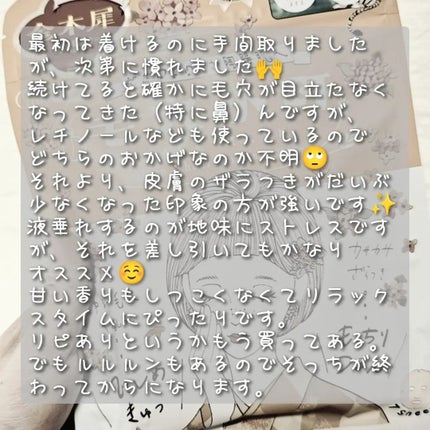 最初は着けるのに手間取りました
が、次第に慣れました🙌
続けてると確かに毛穴が目立たなく
なってきた（特に鼻）んですが、
レチノールなども使っているので
どちらのおかげなのか不明🙄
それより、皮膚のザラつきがだいぶ
少なくなった印象の方が強いです✨
液垂れするのが地味にストレスです
が、それを差し引いてもかなり
オススメ☺️
甘い香りもしつこくなくてリラック
スタイムにぴったりです。
リピありというかもう買ってある。
でもルルルンもあるのでそっちが終
わってからになります。